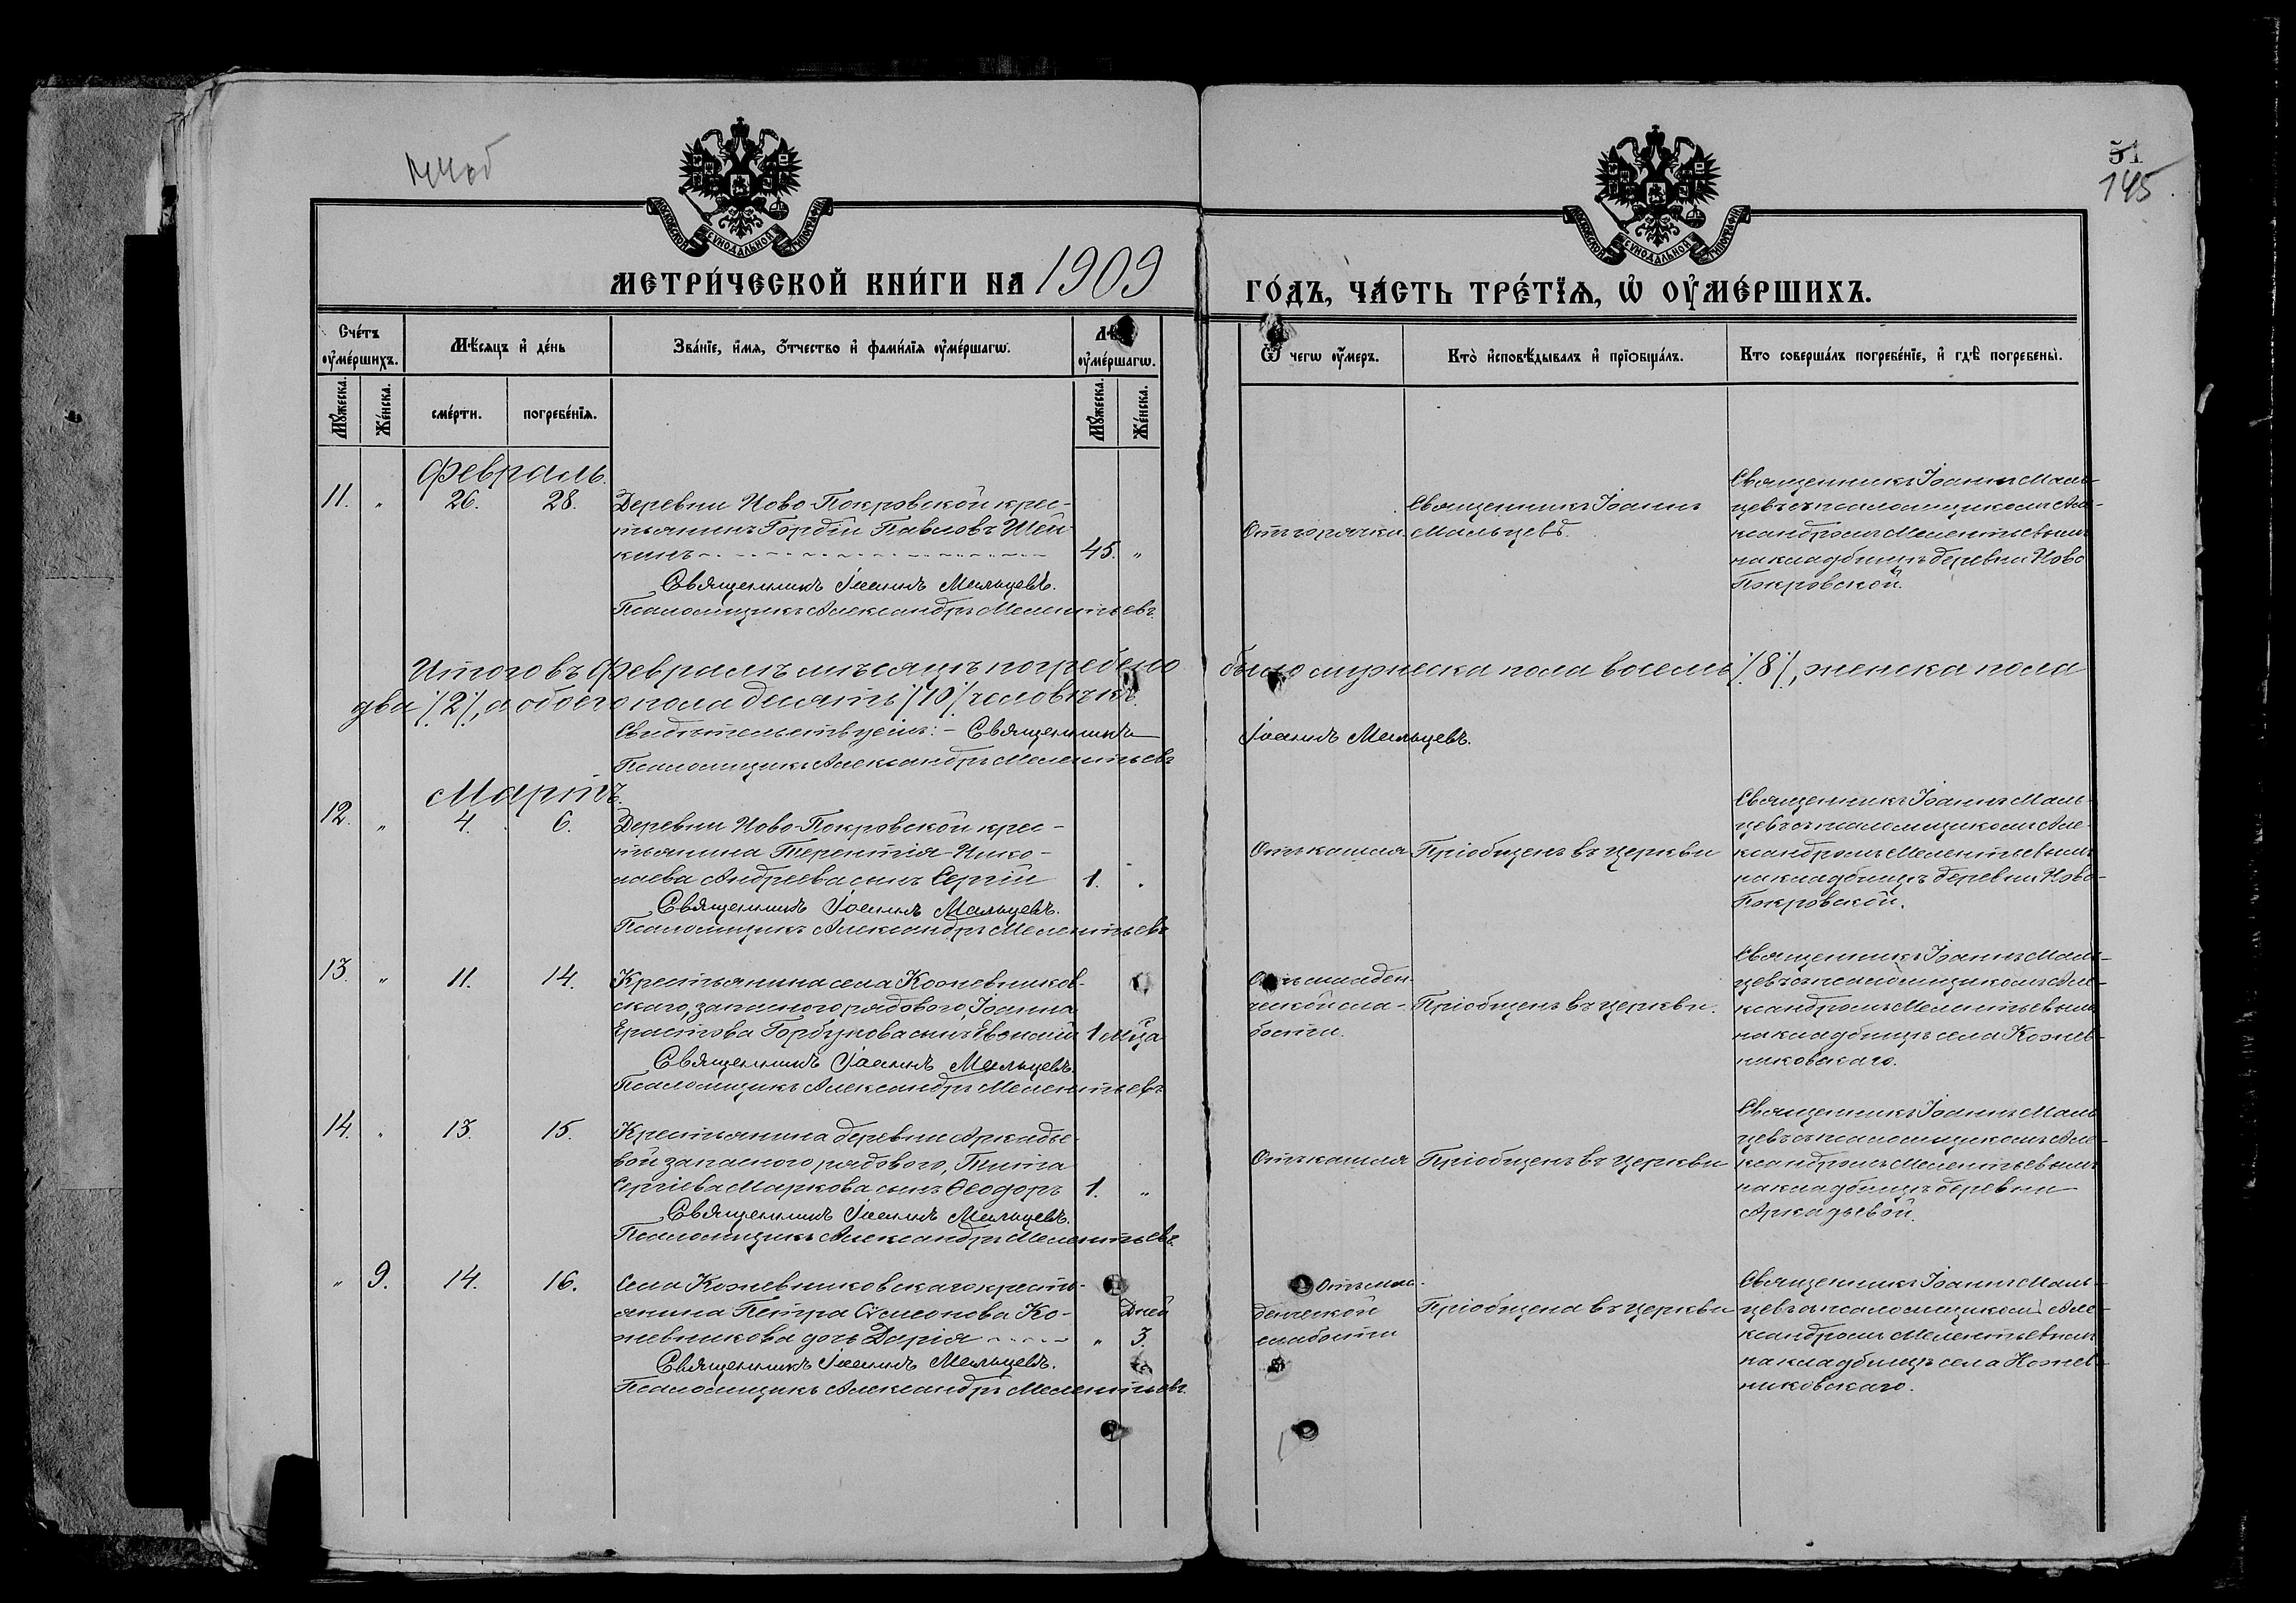 51
145
МОСКОВСКОЙ СУНОДАЛЬНОЙ ТИПОГРАФІИ
МОСКОВСКОЙ СУНОДАЛЬНОЙ ТИПОГРАФІИ
МЕТРИ́ЧЕСКОЙ КНИ́ГИ НА 1909
ГО́ДЪ, ЧА́СТЬ ТРЕ́ТІѦ, Ѡ ОУ҆МЕ́РШИХЪ.
Сче́тъ оу҆ме́ршихъ.
Мѣ́сяцъ и҆ де́нь
Зва́нїе, и҆́мя, ѻ҆́тчество и҆ фами́лїя оу҆ме́ршагѡ.
оу҆ме́ршагѡ.
Ѿ чегѡ оу҆́меръ.
Кто̀ и҆сповѣ́дывалъ и҆ прїѡбща́лъ.
Кто соверша́лъ погребе́нїе, и҆ гдѣ̀ погребены̀.
Му́жеска.
Же́нска.
сме́рти.
погребе́нїя.
Му́жеска.
Же́нска.
Февраль.
11. „ 26. 28.
Деревни Ново-Покровской крес-
тьянинъ Гордій Павловъ Шей-
кинъ 45. „
Священникъ Іоаннъ Мальцевъ.
Псаломщикъ Александръ Мелентьевъ.
Отъ горячки.
Священникъ Іоаннъ
Мальцевъ.
Священникъ Іоаннъ Маль-
цевъ съ псаломщикомъ Але-
ксандромъ Мелентьевымъ
на кладбищѣ деревни Ново
Покровской.
Итого въ Февралѣ мѣсяцѣ погребено было мужеска пола восемь /8/, женска пола
два /2/, а обоего пола десять /10/ человѣкъ.
Свидѣтельствуемъ: – Священникъ Іоаннъ Мальцевъ.
Псаломщикъ Александръ Мелентьевъ
Мартъ.
12. „ 4. 6.
Деревни Ново-Покровской крес-
тьянина Терентія Нико-
лаева Андреева сынъ Сергій 1. „
Священникъ Іоаннъ Мальцевъ.
Псаломщикъ Александръ Мелентьевъ
Отъ кашля
Пріобщенъ въ церкви
Священникъ Іоаннъ Маль-
цевъ съ псаломщикомъ Але-
ксандромъ Мелентьевымъ
на кладбищѣ деревни Ново-
Покровской.
13. „ 11. 14.
Крестьянина села Кожевников-
скаго, запасного рядового, Іоанна
Ерастова Горбунова сынъ 1 м̃ца
Священникъ Іоаннъ Мальцевъ.
Псаломщикъ Александръ Мелентьевъ
Отъ младен-
ческой сла-
бости.
Пріобщенъ въ церкви.
Священникъ Іоаннъ Маль-
цевъ съ псаломщикомъ Але-
ксандромъ Мелентьевымъ
на кладбищѣ села Кожев-
никовскаго.
14. „ 13. 15.
Крестьянина деревни Аркадье-
вой запасного рядового, Тита
Сергіева Маркова сынъ Ѳеодоръ 1. „
Священникъ Іоаннъ Мальцевъ.
Псаломщикъ Александръ Мелентьевъ.
Отъ кашля
Пріобщенъ въ церкви
Священникъ Іоаннъ Маль-
цевъ съ псаломщикомъ Але-
ксандромъ Мелентьевымъ
на кладбищѣ деревни
Аркадьевой.
„ 9. 14. 16.
Села Кожевниковскаго кресть-
янина Петра Сѵмеонова Ко-
жевникова дочь Дарія „ Дней 3.
Священникъ Іоаннъ Мальцевъ.
Псаломщикъ Александръ Мелентьевъ.
Отъ мла-
денческой
слабости
Пріобщена въ церкви
Священникъ Іоаннъ Маль-
цевъ съ псаломщикомъ Але-
ксандромъ Мелентьевымъ
на кладбищѣ села Кожев-
никовскаго.